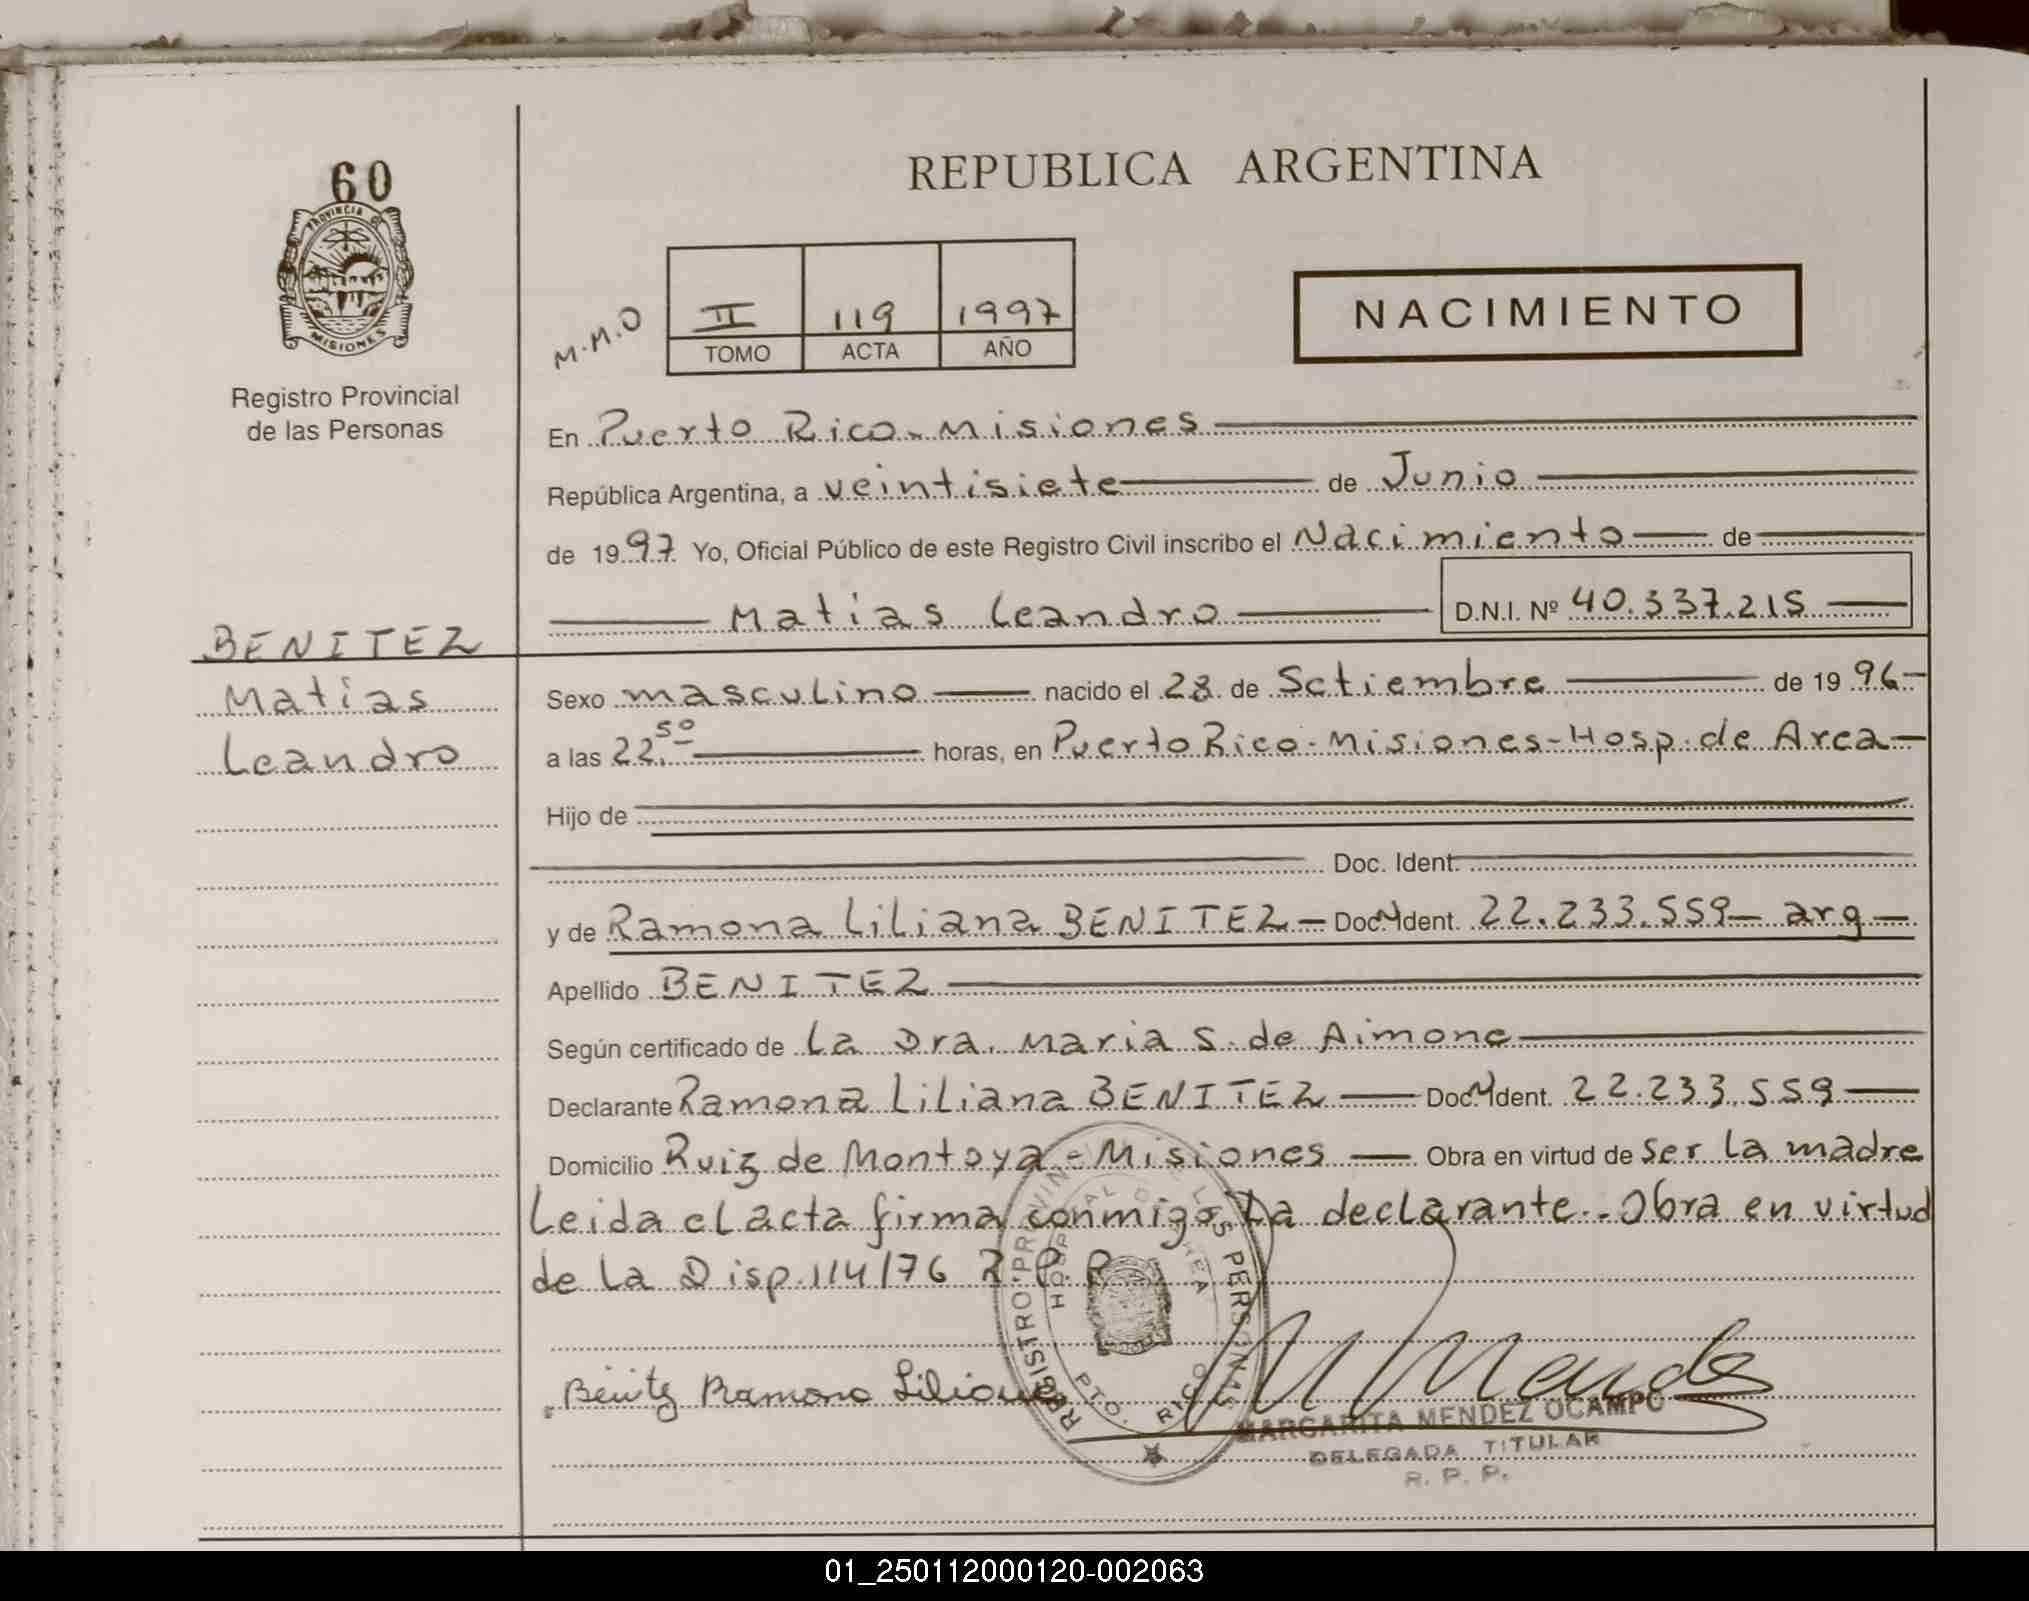 60
PROVINCIA DE
MISIONES
Registro Provincial
de las Personas
REPUBLICA ARGENTINA
M.M.O
II 119 1997
TOMO ACTA AÑO
NACIMIENTO
En Puerto Rico - Misiones
República Argentina, a veintisiete de Junio
de 1997 Yo, Oficial Público de este Registro Civil inscribo el Nacimiento de
Matias Leandro D.N.I. Nº 40.337.215
BENITEZ
Matias
Leandro
Sexo masculino nacido el 28 de Setiembre de 1996
a las 22.50 horas, en Puerto Rico - Misiones - Hosp. de Area
Hijo de
Doc. Ident.
y de Ramona Liliana BENITEZ Doc. Ident. 22.233.559 - arg
Apellido BENITEZ
Según certificado de La Dra. Maria S. de Aimone
Declarante Ramona Liliana BENITEZ Doc. Ident. 22.233.559
Domicilio Ruiz de Montoya - Misiones Obra en virtud de ser la madre
Leida el acta firma conmigo La declarante.- Obra en virtud
de la Disp. 114/76 R.P.P.
REGISTRO PROVINCIAL DE LAS PERSONAS
HOSPITAL DE AREA
PTO. RICO
Benitez Ramona Liliana
M Mendez
MARGARITA MENDEZ OCAMPO
DELEGADA TITULAR
R. P. P.
01_250112000120-002063